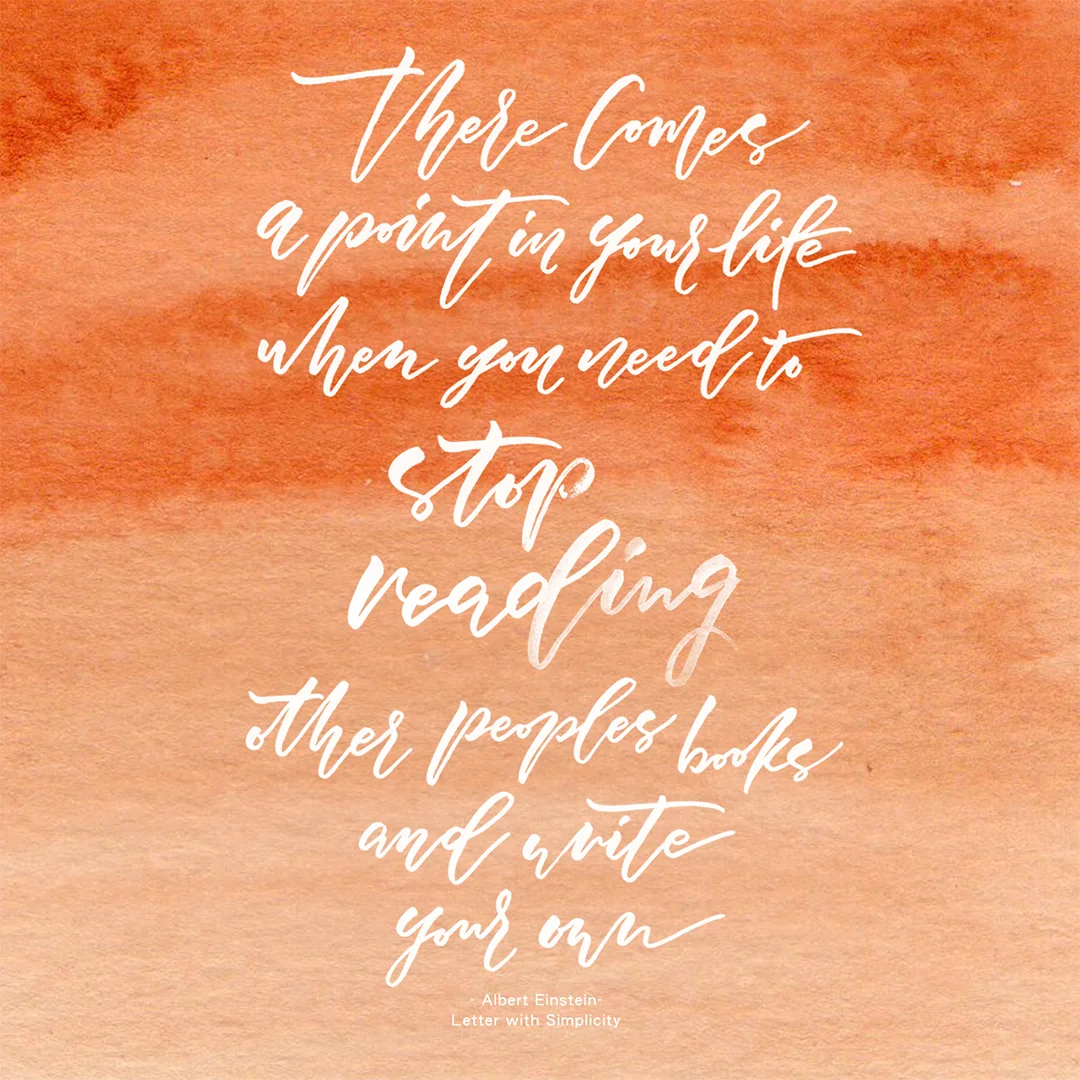 There Comes
a point in your life
when you need to
stop
reading
other peoples books
and write
your own
- Albert Einstein-
Letter with Simplicity